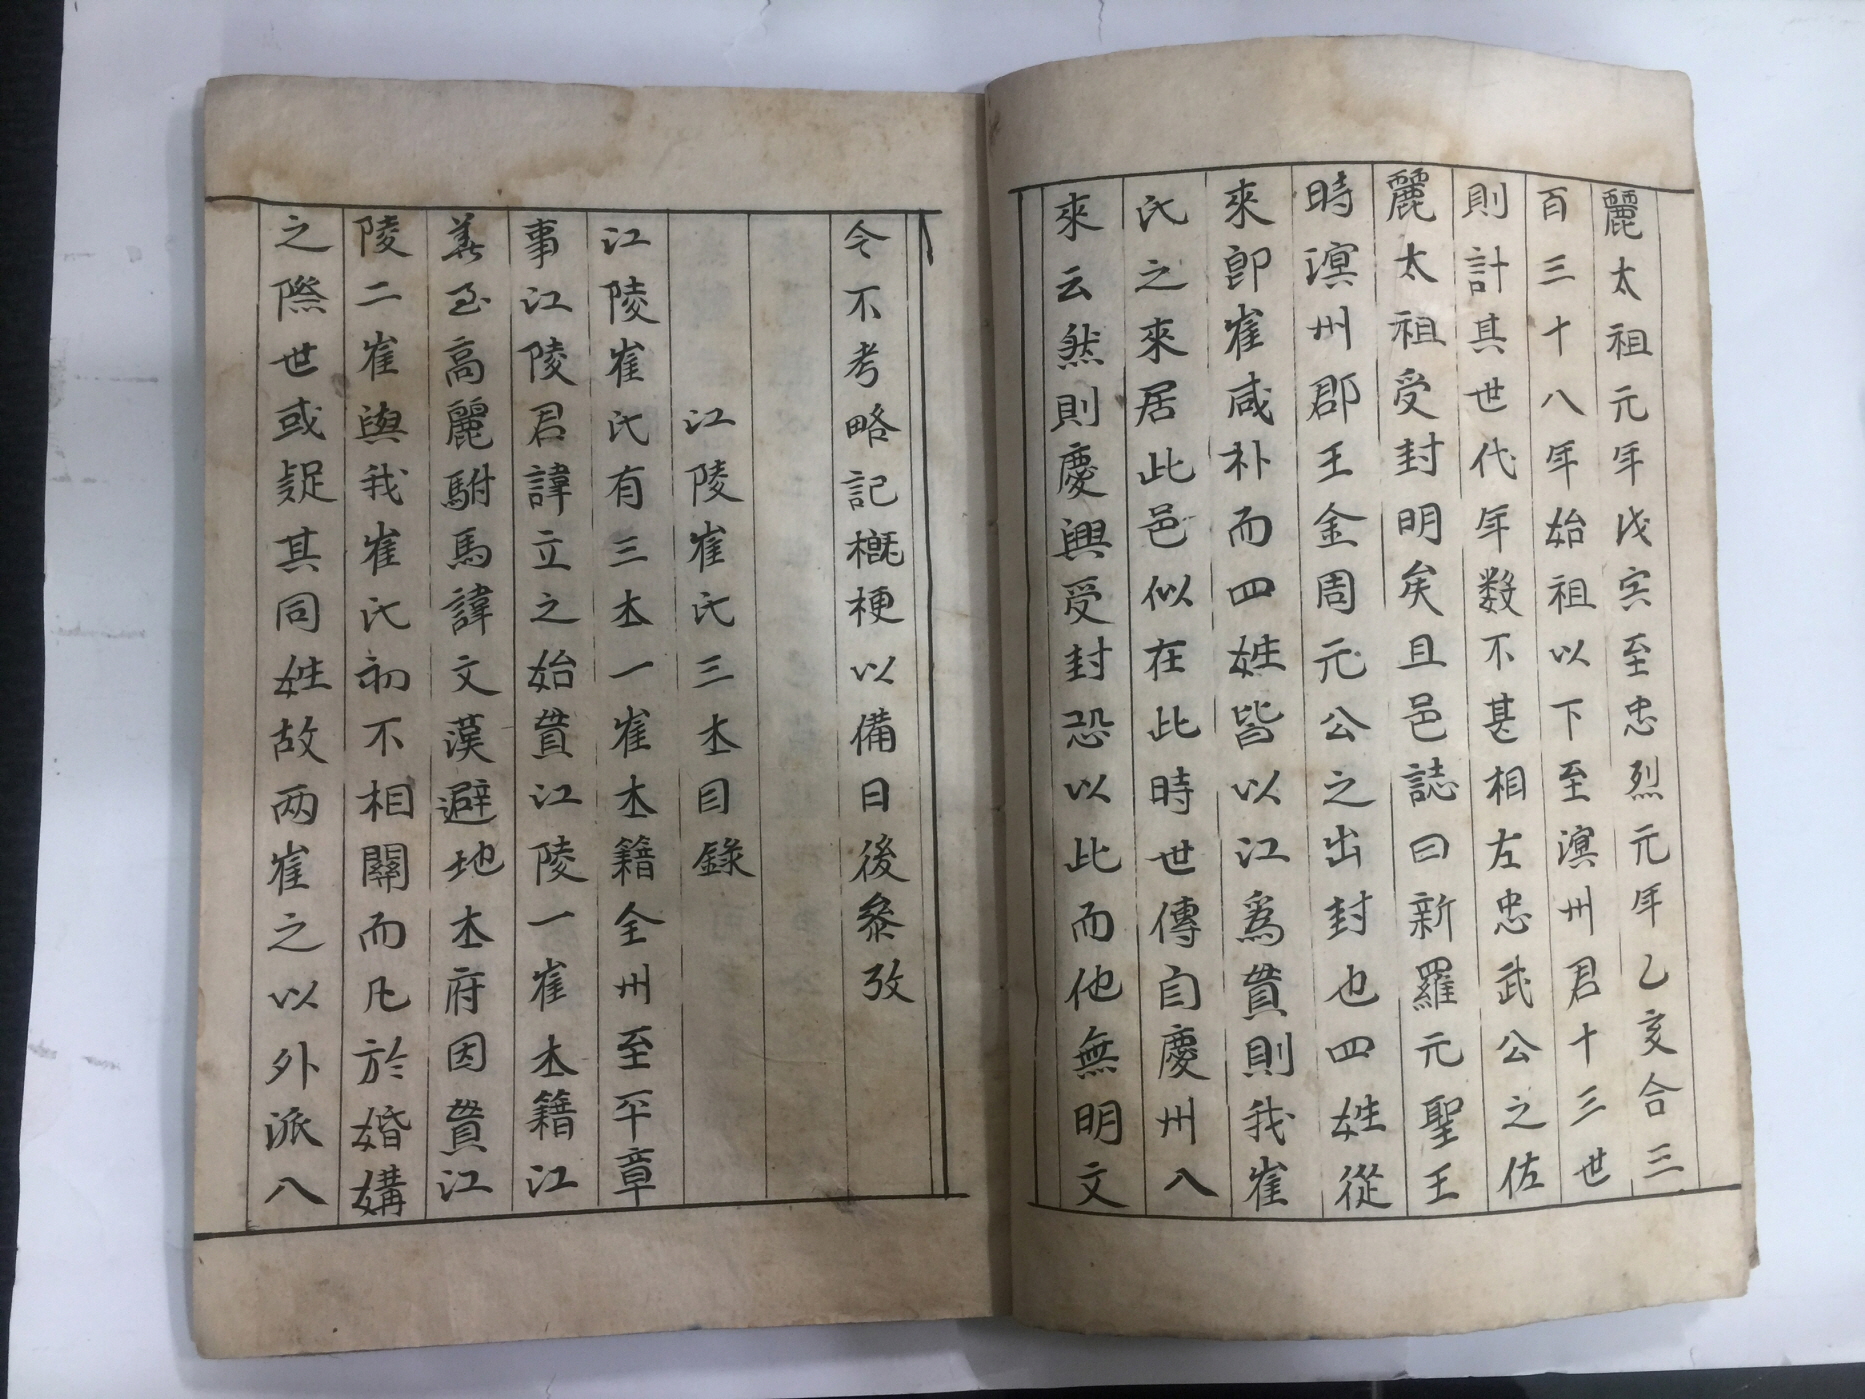 麗太祖元年戊寅至忠烈元年乙亥合三
百三十八年始祖以下至溟州君十三世
則計其世代年数不甚相左忠武公之佐
麗太祖受封明矣且邑誌曰新羅元聖王
時溟州郡王金周元公之出封也四姓從
來卽崔咸朴而四姓皆以江爲貫則我崔
氏之來居此邑似在此時世傳自慶州八
來云然則慶興受封恐以此而他無明文
今不考略記槪梗以備日後叅攷
江陵崔氏三本目錄
江陵崔氏有三本一崔本籍全州至平章
事江陵君諱立之始貫江陵一崔本籍江
華至高麗駙馬諱文漢避地本府因貫江
陵二崔與我崔氏初不相關而凡於婚媾
之際世或疑其同姓故兩崔之以外派八